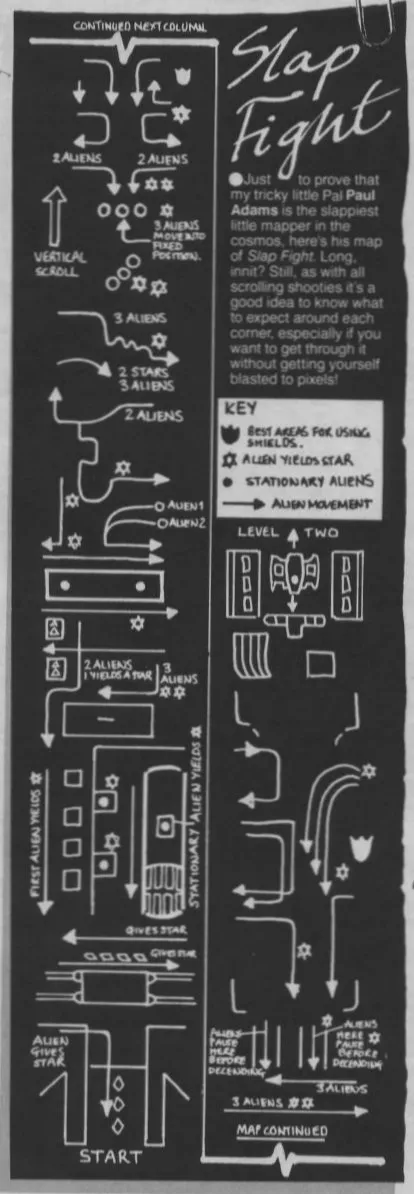 CONTINUED NEXT COLUMN
Slap
Fight
Just to prove that
my tricky little Pal Paul
Adams is the slappiest
little mapper in the
cosmos, here's his map
of Slap Fight. Long,
innit? Still, as with all
scrolling shooties it's a
good idea to know what
to expect around each
corner, especially if you
want to get through it
without getting yourself
blasted to pixels!
KEY
BEST AREAS FOR USING
SHIELDS.
ALIEN YIELDS STAR
STATIONARY ALIENS
ALIEN MOVEMENT
2 ALIENS
2 ALIENS
VERTICAL
SCROLL
3 ALIENS
MOVE INTO
FIXED
POSITION.
3 ALIENS
2 STARS
3 ALIENS
2 ALIENS
ALIEN 1
ALIEN 2
2 ALIENS
1 YIELDS A STAR
3
ALIENS
FIRST ALIEN YIELDS
STATIONARY ALIEN YIELDS
GIVES STAR
GIVES STAR
ALIEN
GIVES
STAR
START
LEVEL TWO
ALIENS
PAUSE
HERE
BEFORE
DECENDING
ALIENS
HERE
PAUSE
BEFORE
DECENDING
3 ALIENS
3 ALIENS
MAP CONTINUED